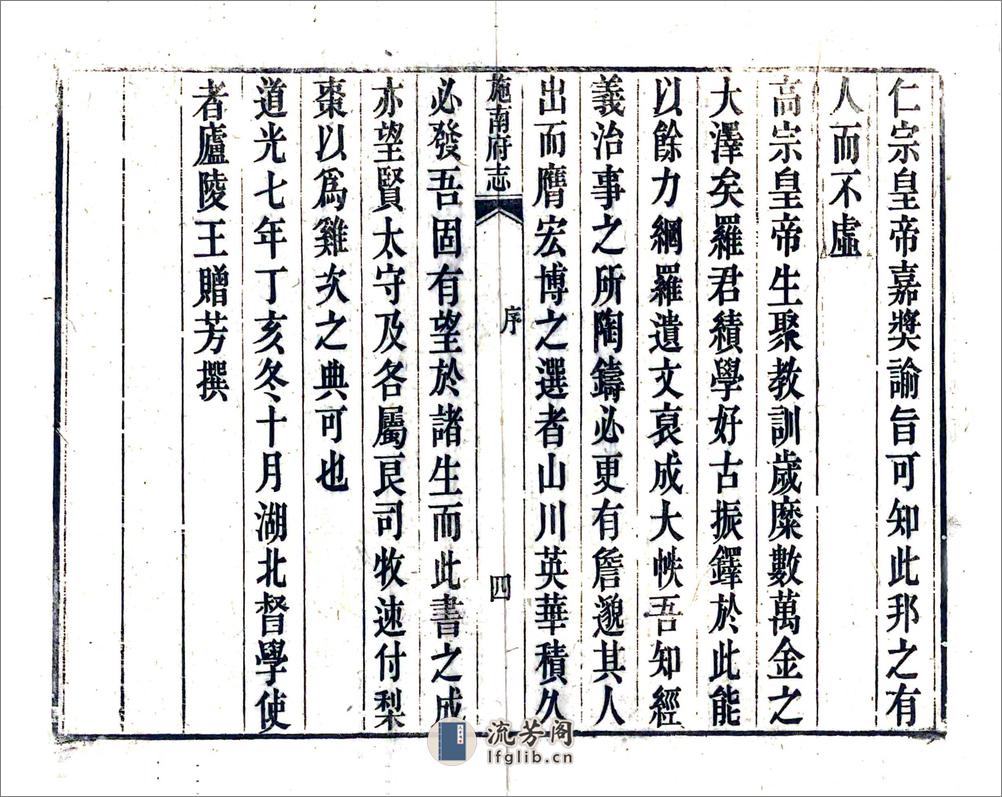 仁宗皇帝嘉奬諭旨可知此邦之有
人而不虛
高宗皇帝生聚教訓歲糜數萬金之
大澤矣羅君績學好古振鐸於此能
以餘力網羅遺文裒成大帙吾知經
義治事之所陶鑄必更有詹邈其人
出而膺宏博之選者山川英華積久
施南府志
序
四
必發吾固有望於諸生而此書之成
亦望賢太守及各屬良司牧速付梨
棗以爲雞次之典可也
道光七年丁亥冬十月湖北督學使
者廬陵王贈芳撰
流芳阁
lfglib.cn